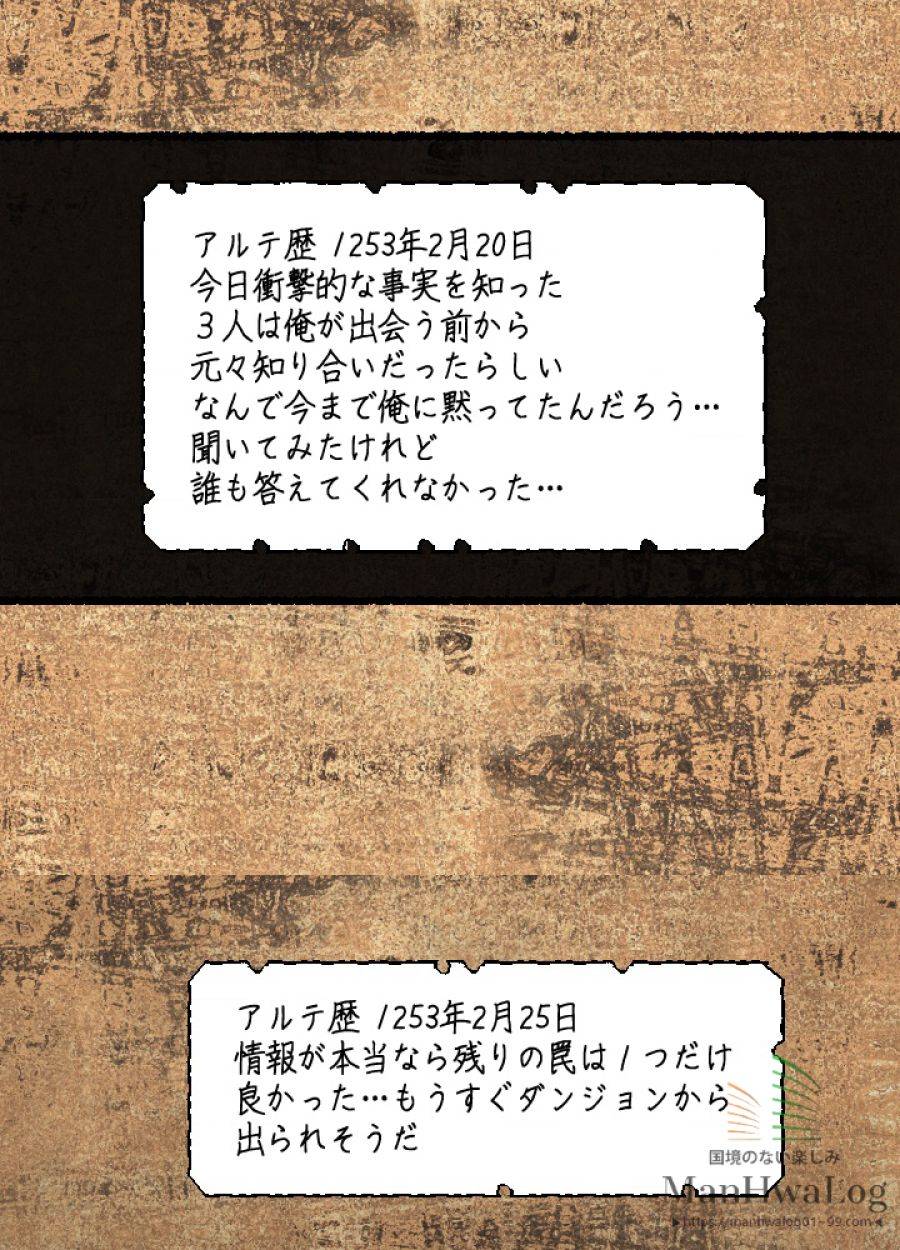 アルテ歴 1253年2月20日
今日衝撃的な事実を知った
３人は俺が出会う前から
元々知り合いだったらしい
なんで今まで俺に黙ってたんだろう…
聞いてみたけれど
誰も答えてくれなかった…
アルテ歴 1253年2月25日
情報が本当なら残りの罠は1つだけ
良かった…もうすぐダンジョンから
出られそうだ
国境のない楽しみ
ManHwaLog
▶https://manhwalog01-99.com◀